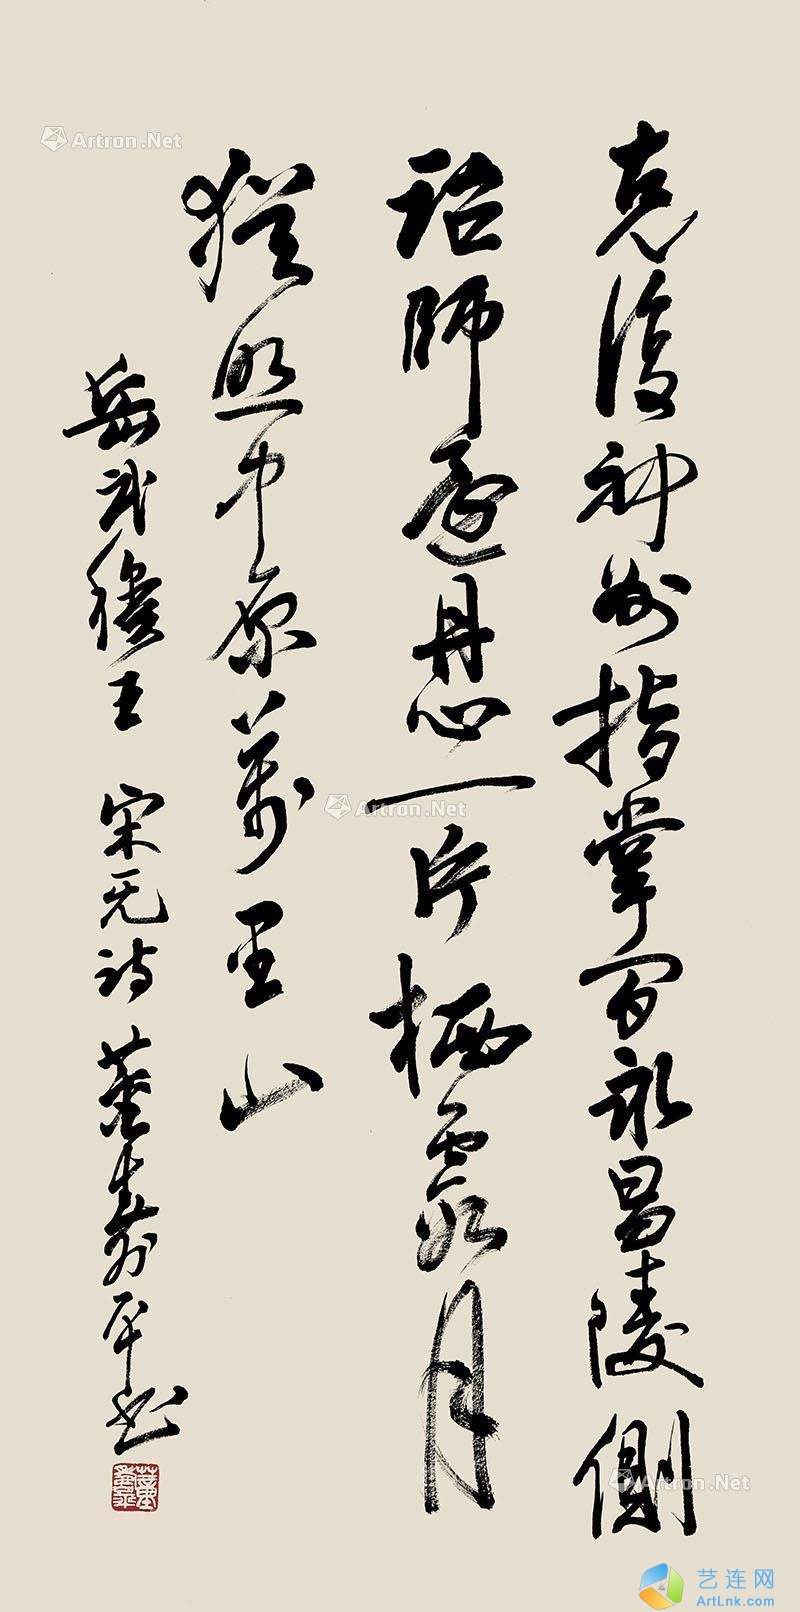 克復神州指掌間永昌陵側
詔師還丹心一片栖霞月
猶照中原萬里山
岳武穆王 宋无詩 董壽平书
董壽平
Artron.Net
Artron.Net
Artron.Net
艺连网
ArtLnk.com